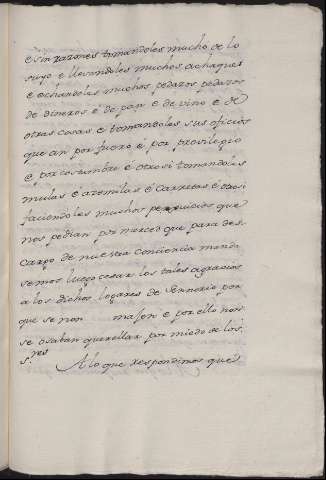 e sin razones tomandoles mucho de lo
suyo e llevandoles muchos achaques
e echandoles muchos pedazos pedazos
de dineros e de pan e de vino e de
otras cosas e tomandoles sus oficios
que an por fuero e por previlegio
e por costumbre e otrosi tomandoles
mulas e azemilas e carretas e otrosi
faciendoles muchos perjuicios que
nos pedian por merced que para des-
cargo de nuestra conciencia manda
semos luego cesar los tales agravios
a los dichos logares de Señorio por
que se non masen e por ello non
se osaban querellar por miedo de los
s.res
A lo que respondimos que